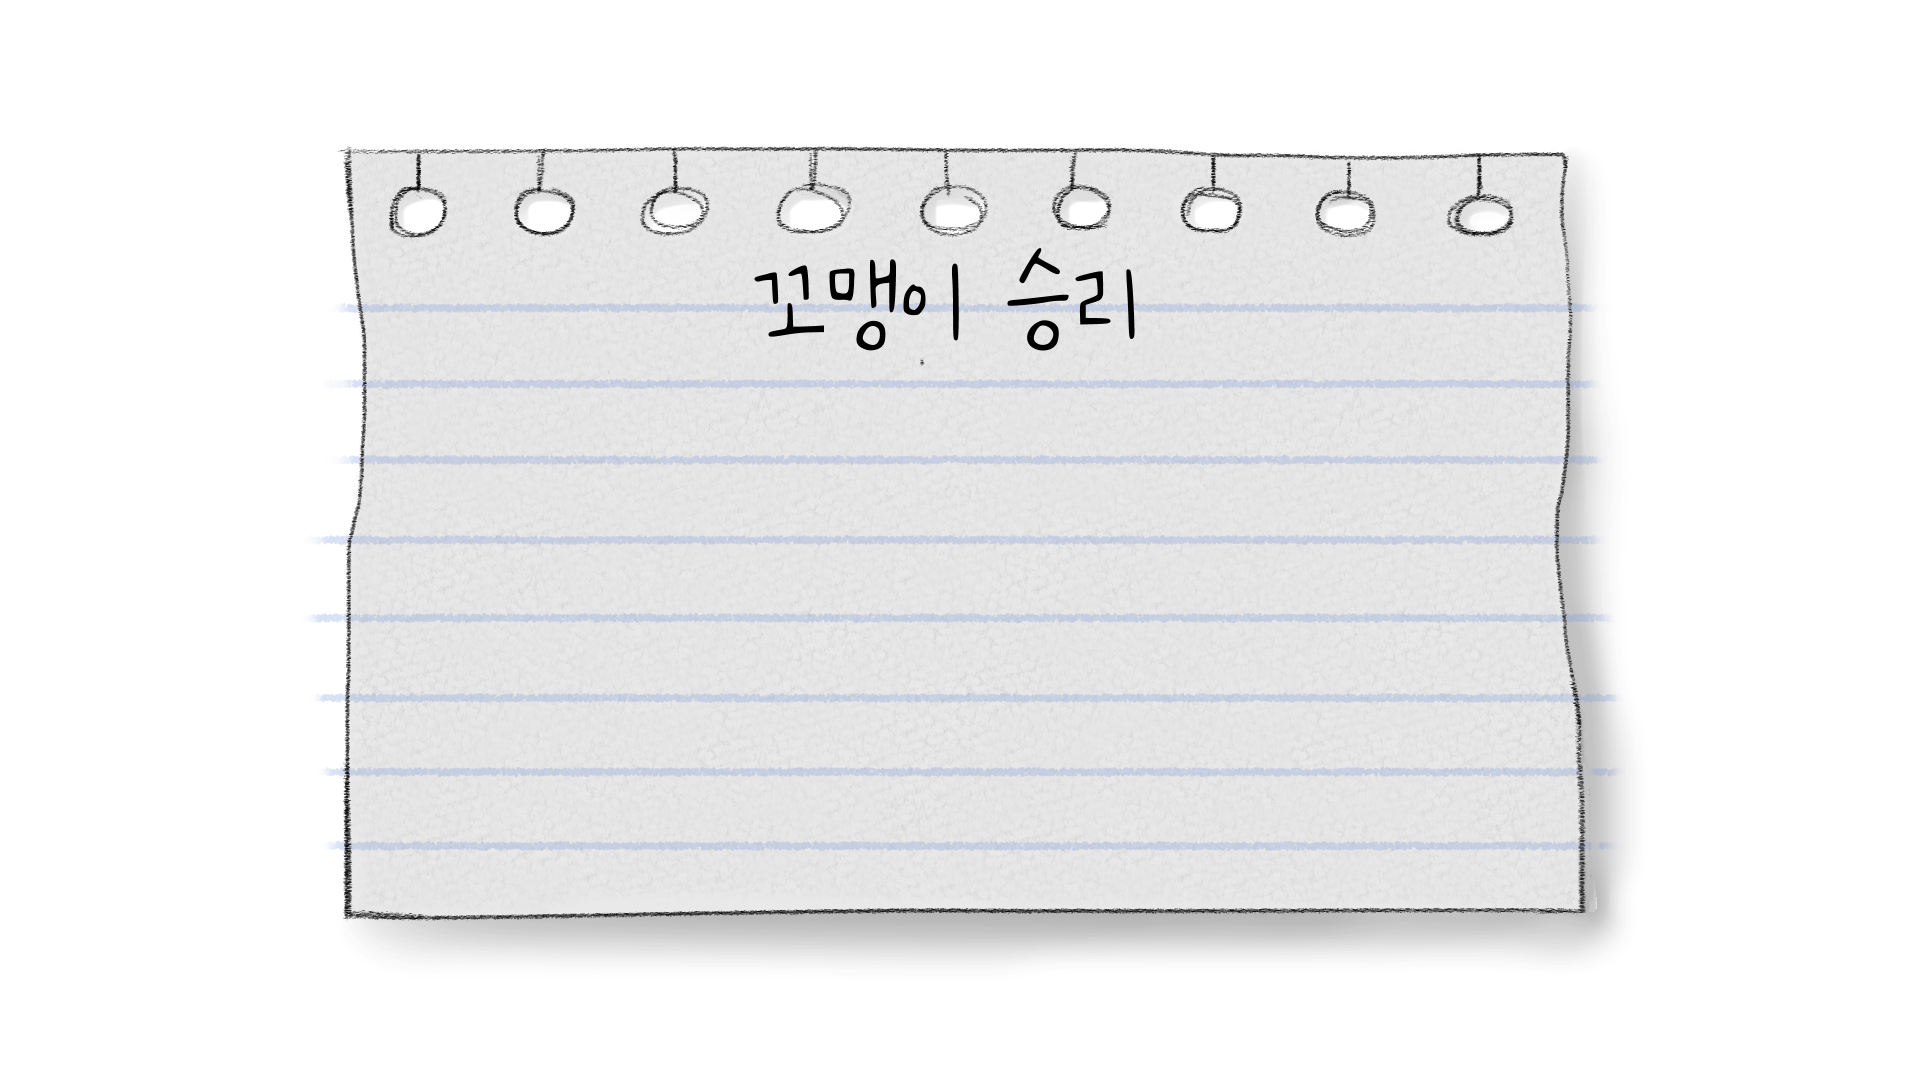 꼬맹이 승리